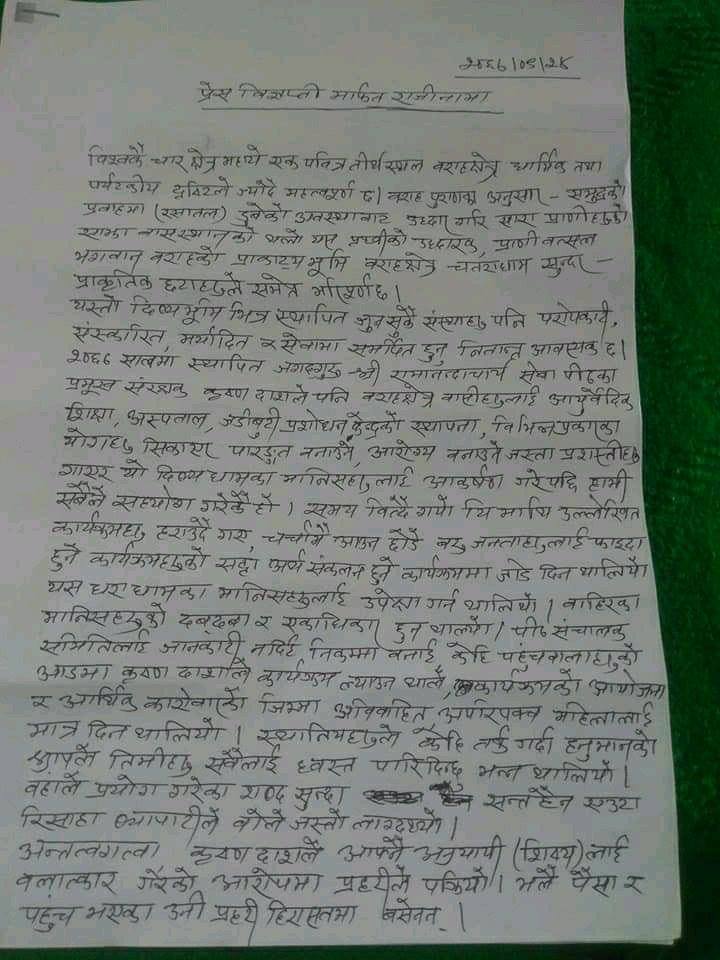 २०७६/०९/२८
प्रेस विज्ञप्ती मार्फत राजीनामा
विश्वकै चार क्षेत्र मध्ये एक पवित्र तीर्थस्थल वराहक्षेत्र धार्मिक तथा
पर्यटकीय दृष्टिले ज्यादै महत्वपूर्ण छ। वराह पुराणका अनुसार - समुद्रको
प्रवाहमा (रसातल) डुबेको अवस्थाबाट उद्धार गरि सारा प्राणीहरुको
साझा वासस्थानको थलो यस पृथ्वीको उद्धारक, प्राणी वत्सल
भगवान वराहको प्राकाट्य भूमि वराहक्षेत्र चतराधाम सुन्दर -
प्राकृतिक छटाहरुले समेत्र भरिपूर्ण छ।
यस्तो दिव्यभूमि भित्र स्थापित जुनसुकै संस्थाहरु पनि परोपकारी,
संस्कारित, मर्यादित र सेवामा समर्पित हुनु नितान्त आवश्यक छ।
२०६६ सालमा स्थापित जगद्गुरु श्री रामानन्दाचार्य सेवा पीठका
प्रमुख संरक्षक कृष्ण दाशले पनि वराहक्षेत्र वासीहरुलाई आयुर्वेदिक
शिक्षा, अस्पताल, जडीबुटी प्रशोधन केन्द्रको स्थापना, विभिन्न प्रकारका
योगहरु सिकाएर पारङ्गत बनाउने, आरोग्य बनाउने जस्ता प्रशस्तीहरु
गाएर यो दिव्यधामका मानिसहरुलाई आकर्षण गरेपछि हामी
सबैले सहयोग गरेकै हो। समय बित्दै गयो यि माथि उल्लेखित
कार्यक्रमहरु हराउदै गए, चर्चामै आउन छोडे बरु जनताहरुलाई फाइदा
हुने कार्यक्रमहरुको सट्टा अर्थ संकलन हुने कार्यक्रममा जोड दिन थालियो
यस धराधामका मानिसहरुलाई उपेक्षा गर्न थालियो। बाहिरका
मानिसहरुको दबदबा र एकाधिकार हुन थाल्यो। पीठ संचालक
समितिलाई जानकारी नदिई निकम्मा बनाई केहि पहुंचवालाहरुको
आडमा कृष्ण दाशले कार्यक्रम ल्याउन थाले, कार्यक्रमको आयोजना
र आर्थिक कारोवारको जिम्मा अविवाहित अपरिपक्व महिलालाई
मात्र दिन थालियो। स्थानियहरुले केहि तर्क गर्दा हनुमानको
श्रापले तिमीहरु सबैलाई ध्वस्त पारिदिन्छु भन्न थालियो।
वहाँले प्रयोग गरेका शब्द सुन्दा सन्त हैन एउटा
रिसाहा व्यापारीले बोले जस्तो लाग्दथ्यो।
अन्ततोगत्वा कृष्ण दाशले आफ्नै अनुयायी (शिष्य) लाई
बलात्कार गरेको आरोपमा प्रहरीले पक्रियो। भलै पैसा र
पहुंच भएका उनी प्रहरी हिरासतमा बसेनन्।